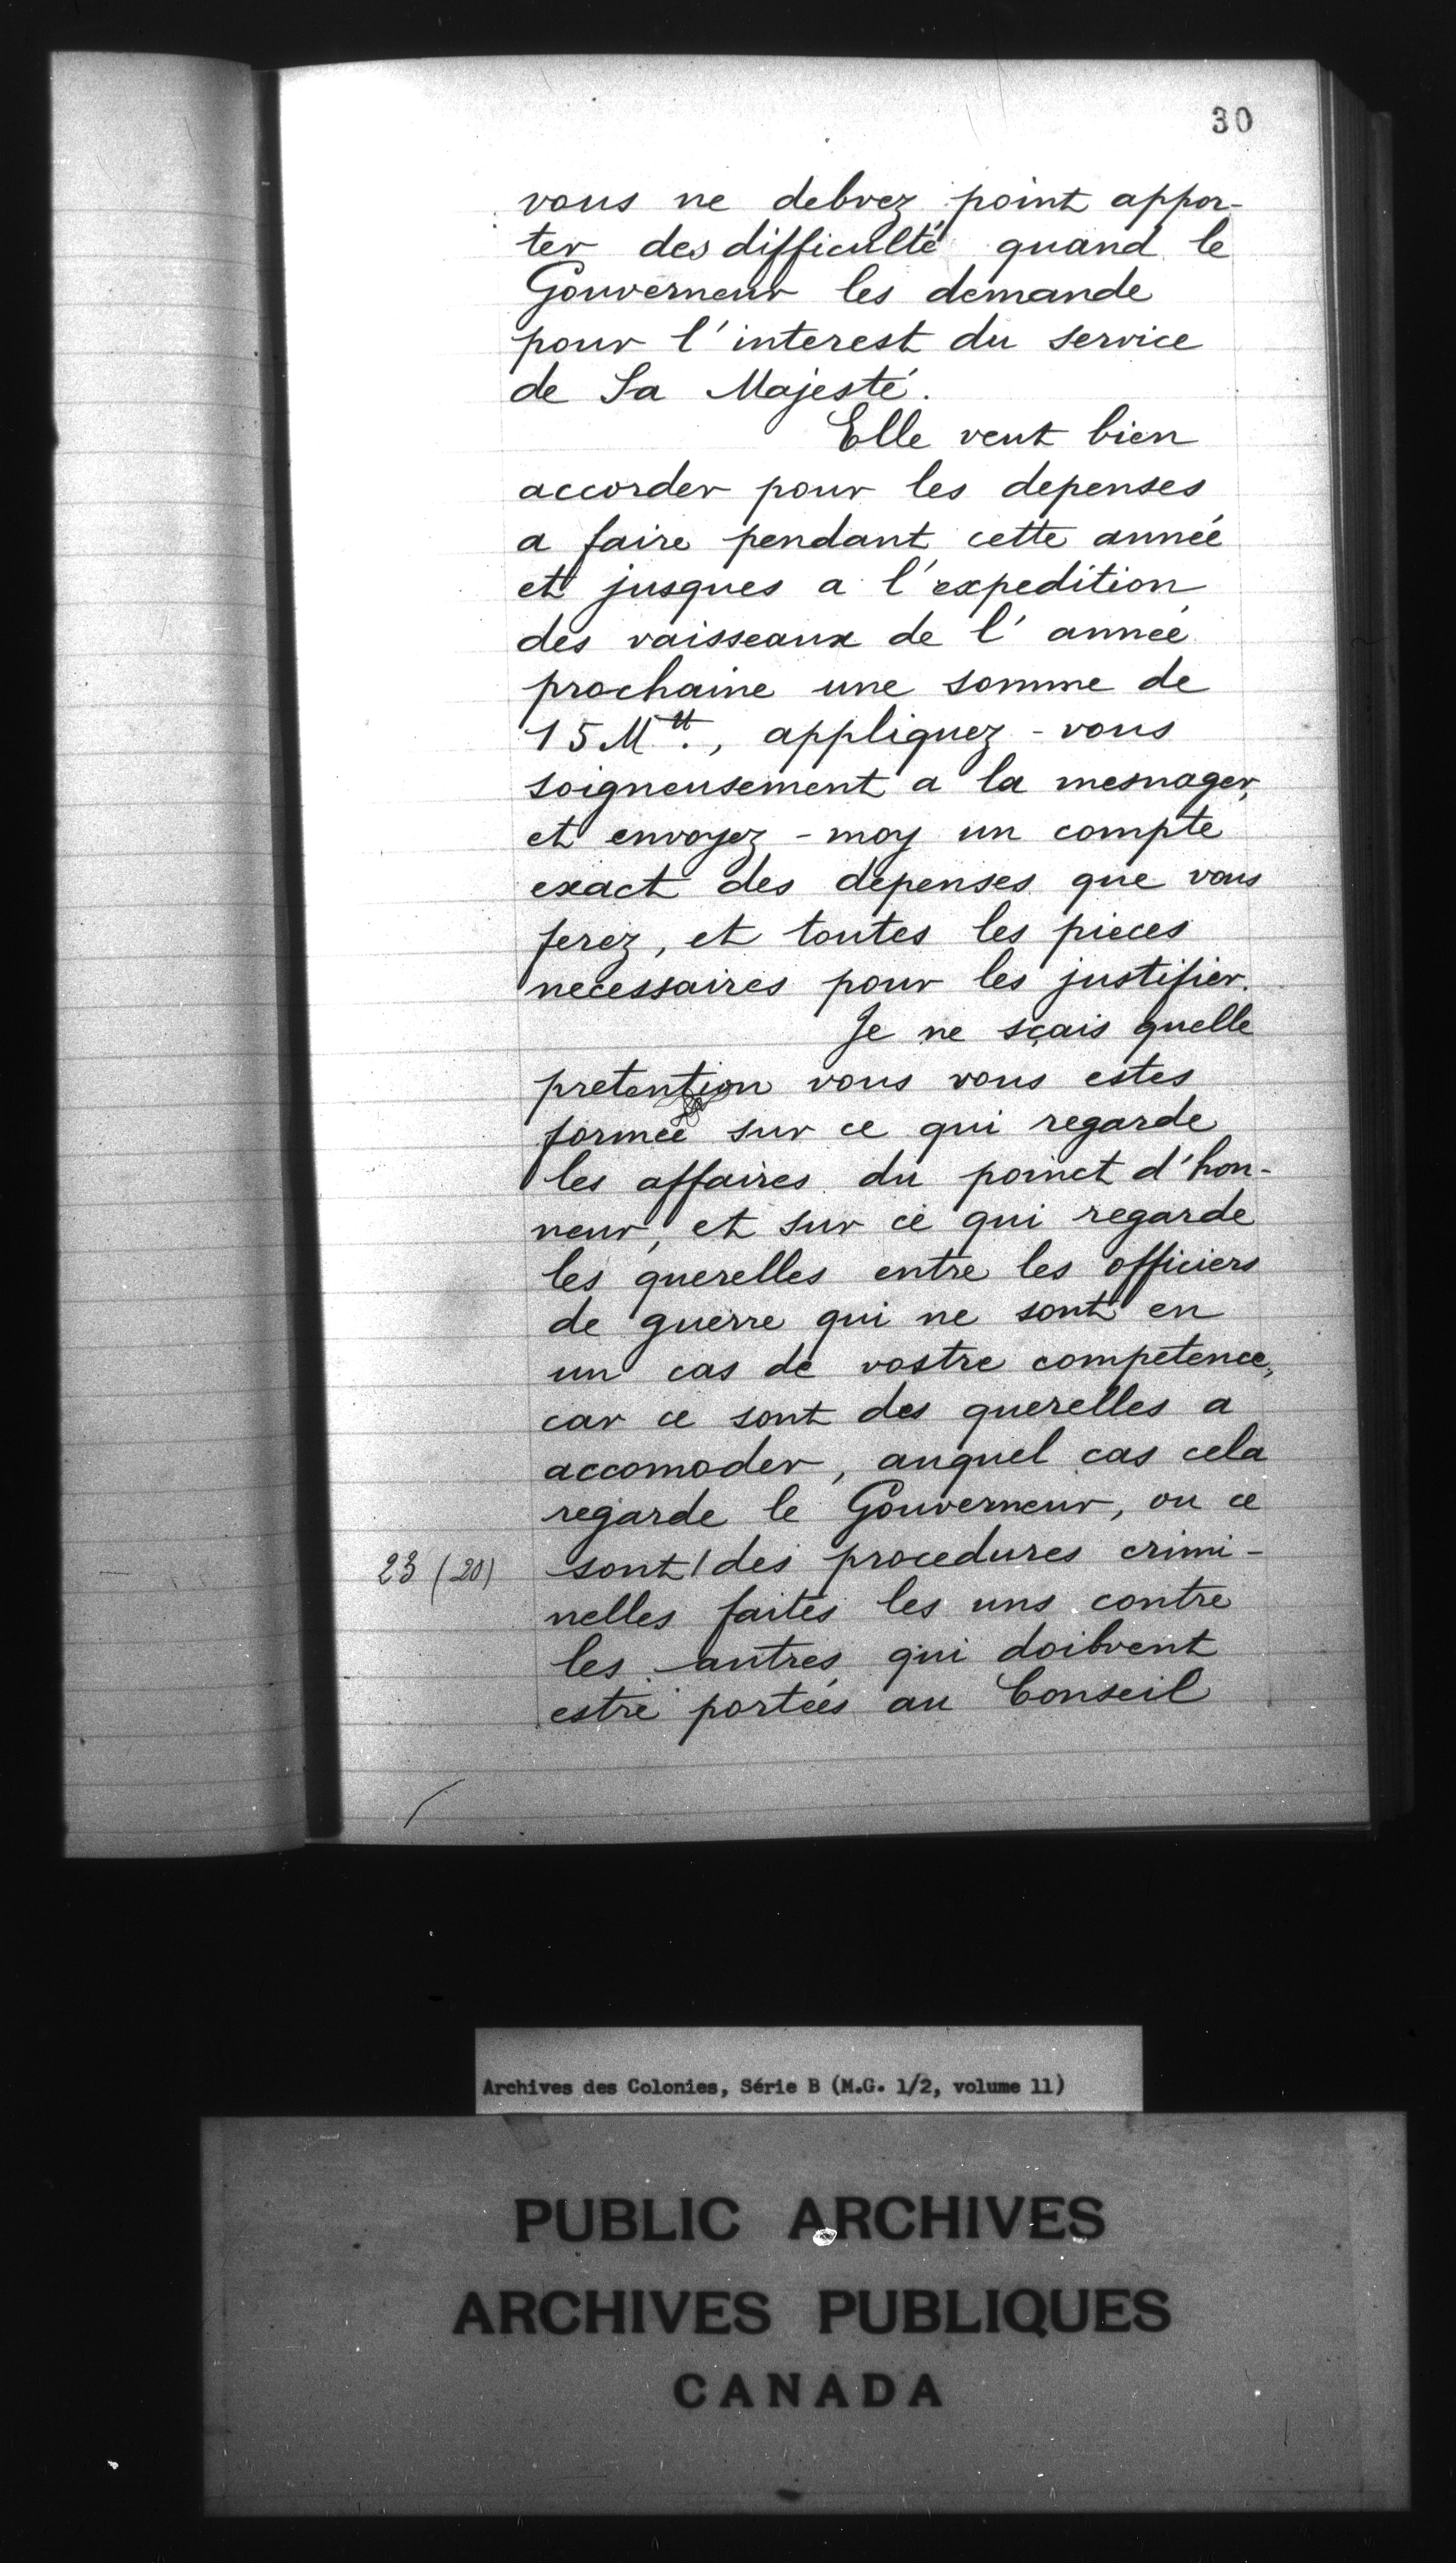 30
vous ne debvez point appor-
ter des difficulté quand le
Gouverneur les demande
pour l'interest du service
de Sa Majesté.
Elle veut bien
accorder pour les depenses
a faire pendant cette année
et jusques a l'expedition
des vaisseaux de l'année
prochaine une somme de
15 M ₶., appliquez-vous
soigneusement a la mesnager,
et envoyez-moy un compte
exact des depenses que vous
ferez, et toutes les pieces
necessaires pour les justifier.
Je ne sçais quelle
pretention vous vous estes
formée sur ce qui regarde
les affaires du poinct d'hon-
neur, et sur ce qui regarde
les querelles entre les officiers
de guerre qui ne sont en
un cas de vostre competence,
car ce sont des querelles a
accomoder, auquel cas cela
regarde le Gouverneur, ou ce
23 (20) sont / des procedures crimi-
nelles faites les uns contre
les autres qui doibvent
estre portées au Conseil
Archives des Colonies, Série B (M.G. 1/2, volume 11)
PUBLIC ARCHIVES
ARCHIVES PUBLIQUES
CANADA